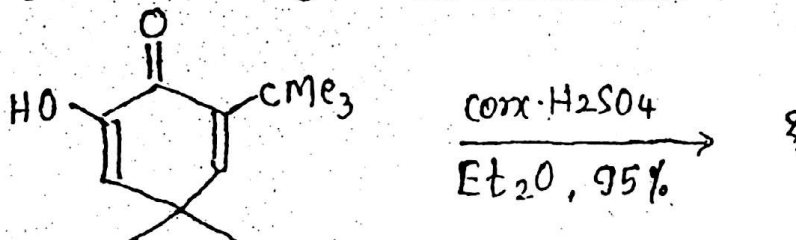 O
HO
CMe3
conx·H2SO4
Et2O, 95%